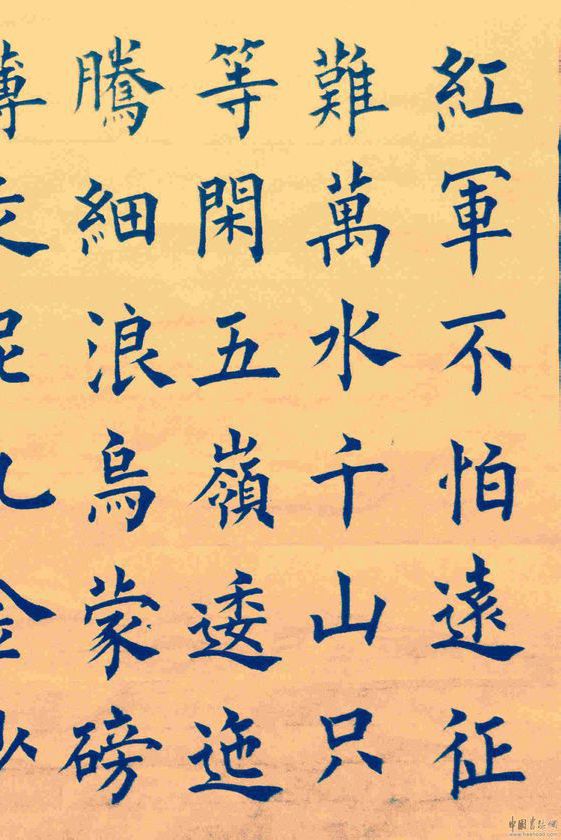 紅軍不怕遠征
難萬水千山只
等閑五嶺逶迤
騰細浪烏蒙磅
中國書法網